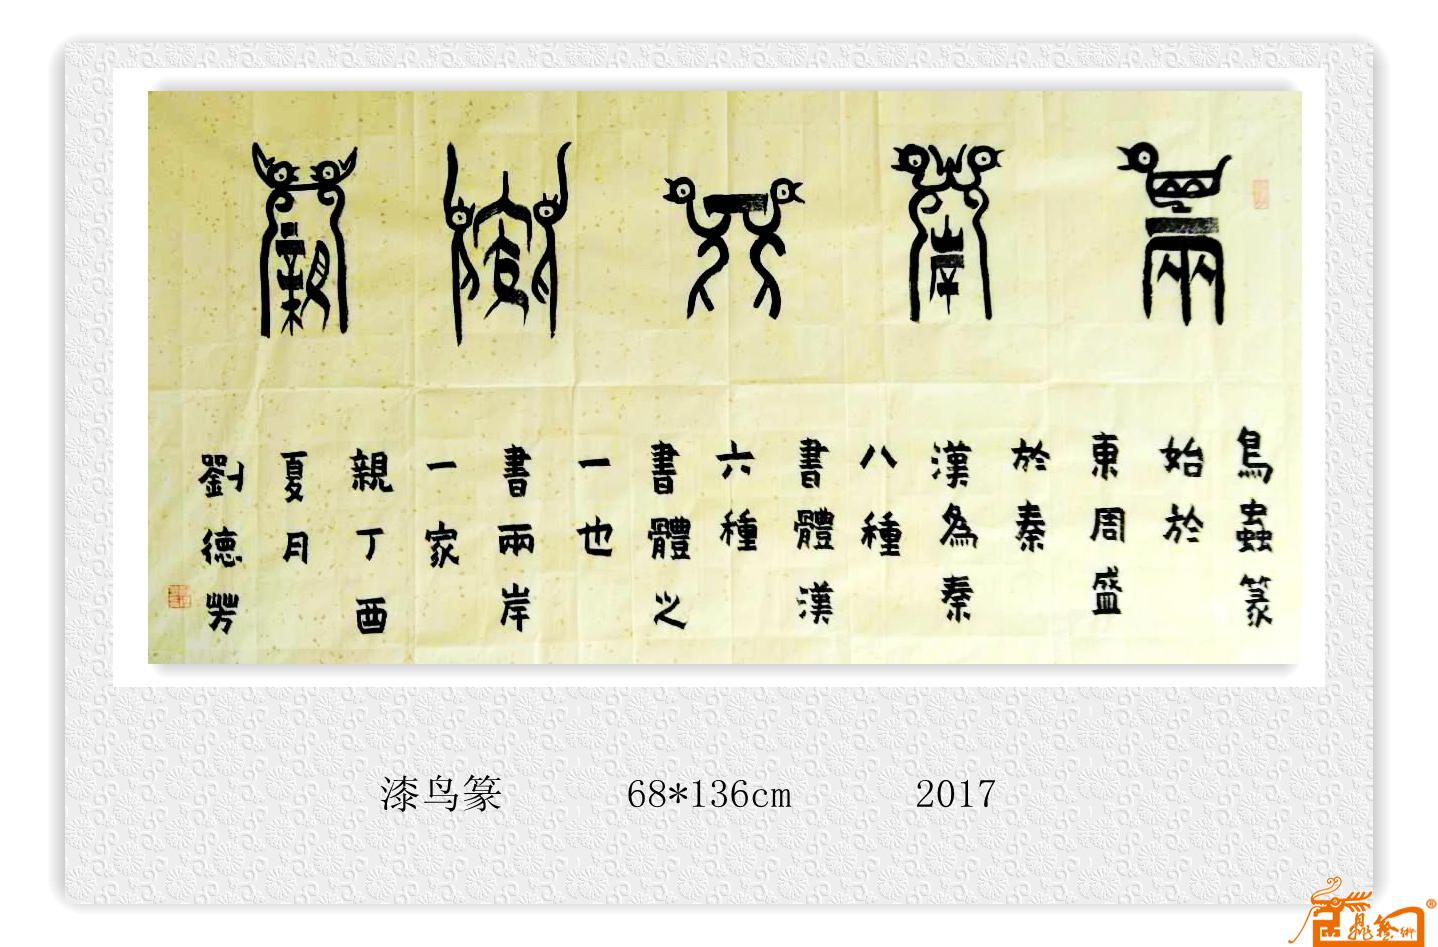 兩岸一家親
鳥蟲篆
始於
東周盛
於秦
漢為秦
八種
書體漢
六種
書體之
一也
書兩岸
一家
親丁酉
夏月
劉德
漆鸟篆 68*136cm 2017